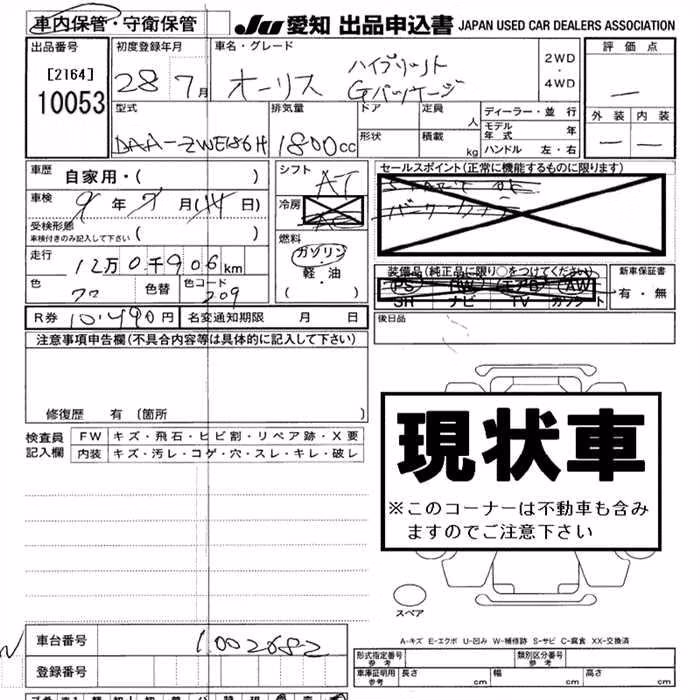 車内保管・守衛保管 JU 愛知 出品申込書 JAPAN USED CAR DEALERS ASSOCIATION
出品番号 初度登録年月 車名・グレード 2WD・4WD 評価点
[2164] 28 7月 オーリス ハイブリット
10053 Gパッケージ
外装 内装
型式 排気量 ドア 定員 人 ディーラー・並行
DAA-ZWE186H 1800cc 形状 積載 kg モデル年式 年
ハンドル 左・右
車歴 自家用・( ) シフト AT セールスポイント(正常に機能するものに限ります)
車検 9年7月(14日) 冷房
受検形態 車検付きのみ記入して下さい ( ) 燃料
ガソリン・軽・油 ( )
走行 12万0千906km 装備品(純正品に限り○をつけてください) 新車保証書
PS PW エアB AW 有・無
色 色替 色コード 209 SR ナビ TV カセット
R券 10,490円 名変通知期限 月 日 後日品
注意事項申告欄(不具合内容等は具体的に記入して下さい)
修復歴 有 〔箇所 〕
現状車
※このコーナーは不動車も含み
ますのでご注意下さい
検査員記入欄 FW キズ・飛石・ヒビ割・リペア跡・X要
内装 キズ・汚レ・コゲ・穴・スレ・キレ・破レ
スペア
A-キズ E-エクボ U-凹み W-補修跡 S-サビ C-腐食 XX-交換済
車台番号 1002682 形式指定番号 参考 類別区分番号 参考
登録番号 車庫証明用 参考 長さ cm 幅 cm 高さ cm